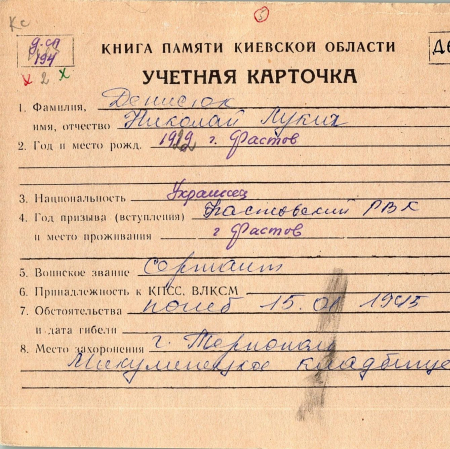 Кс
5
д. сп
194
х 2 х
КНИГА ПАМЯТИ КИЕВСКОЙ ОБЛАСТИ
УЧЕТНАЯ КАРТОЧКА
1. Фамилия, Денисюк
имя, отчество Николай Лукич
2. Год и место рожд. г. Фастов
3. Национальность Украинец
4. Год призыва (вступления) Фастовский РВК
и место проживания г Фастов
5. Воинское звание сержант
6. Принадлежность к КПСС, ВЛКСМ
7. Обстоятельства погиб 15.01 1945
и дата гибели
8. Место захоронения г. Тернополь
Микулинецкое кладбище